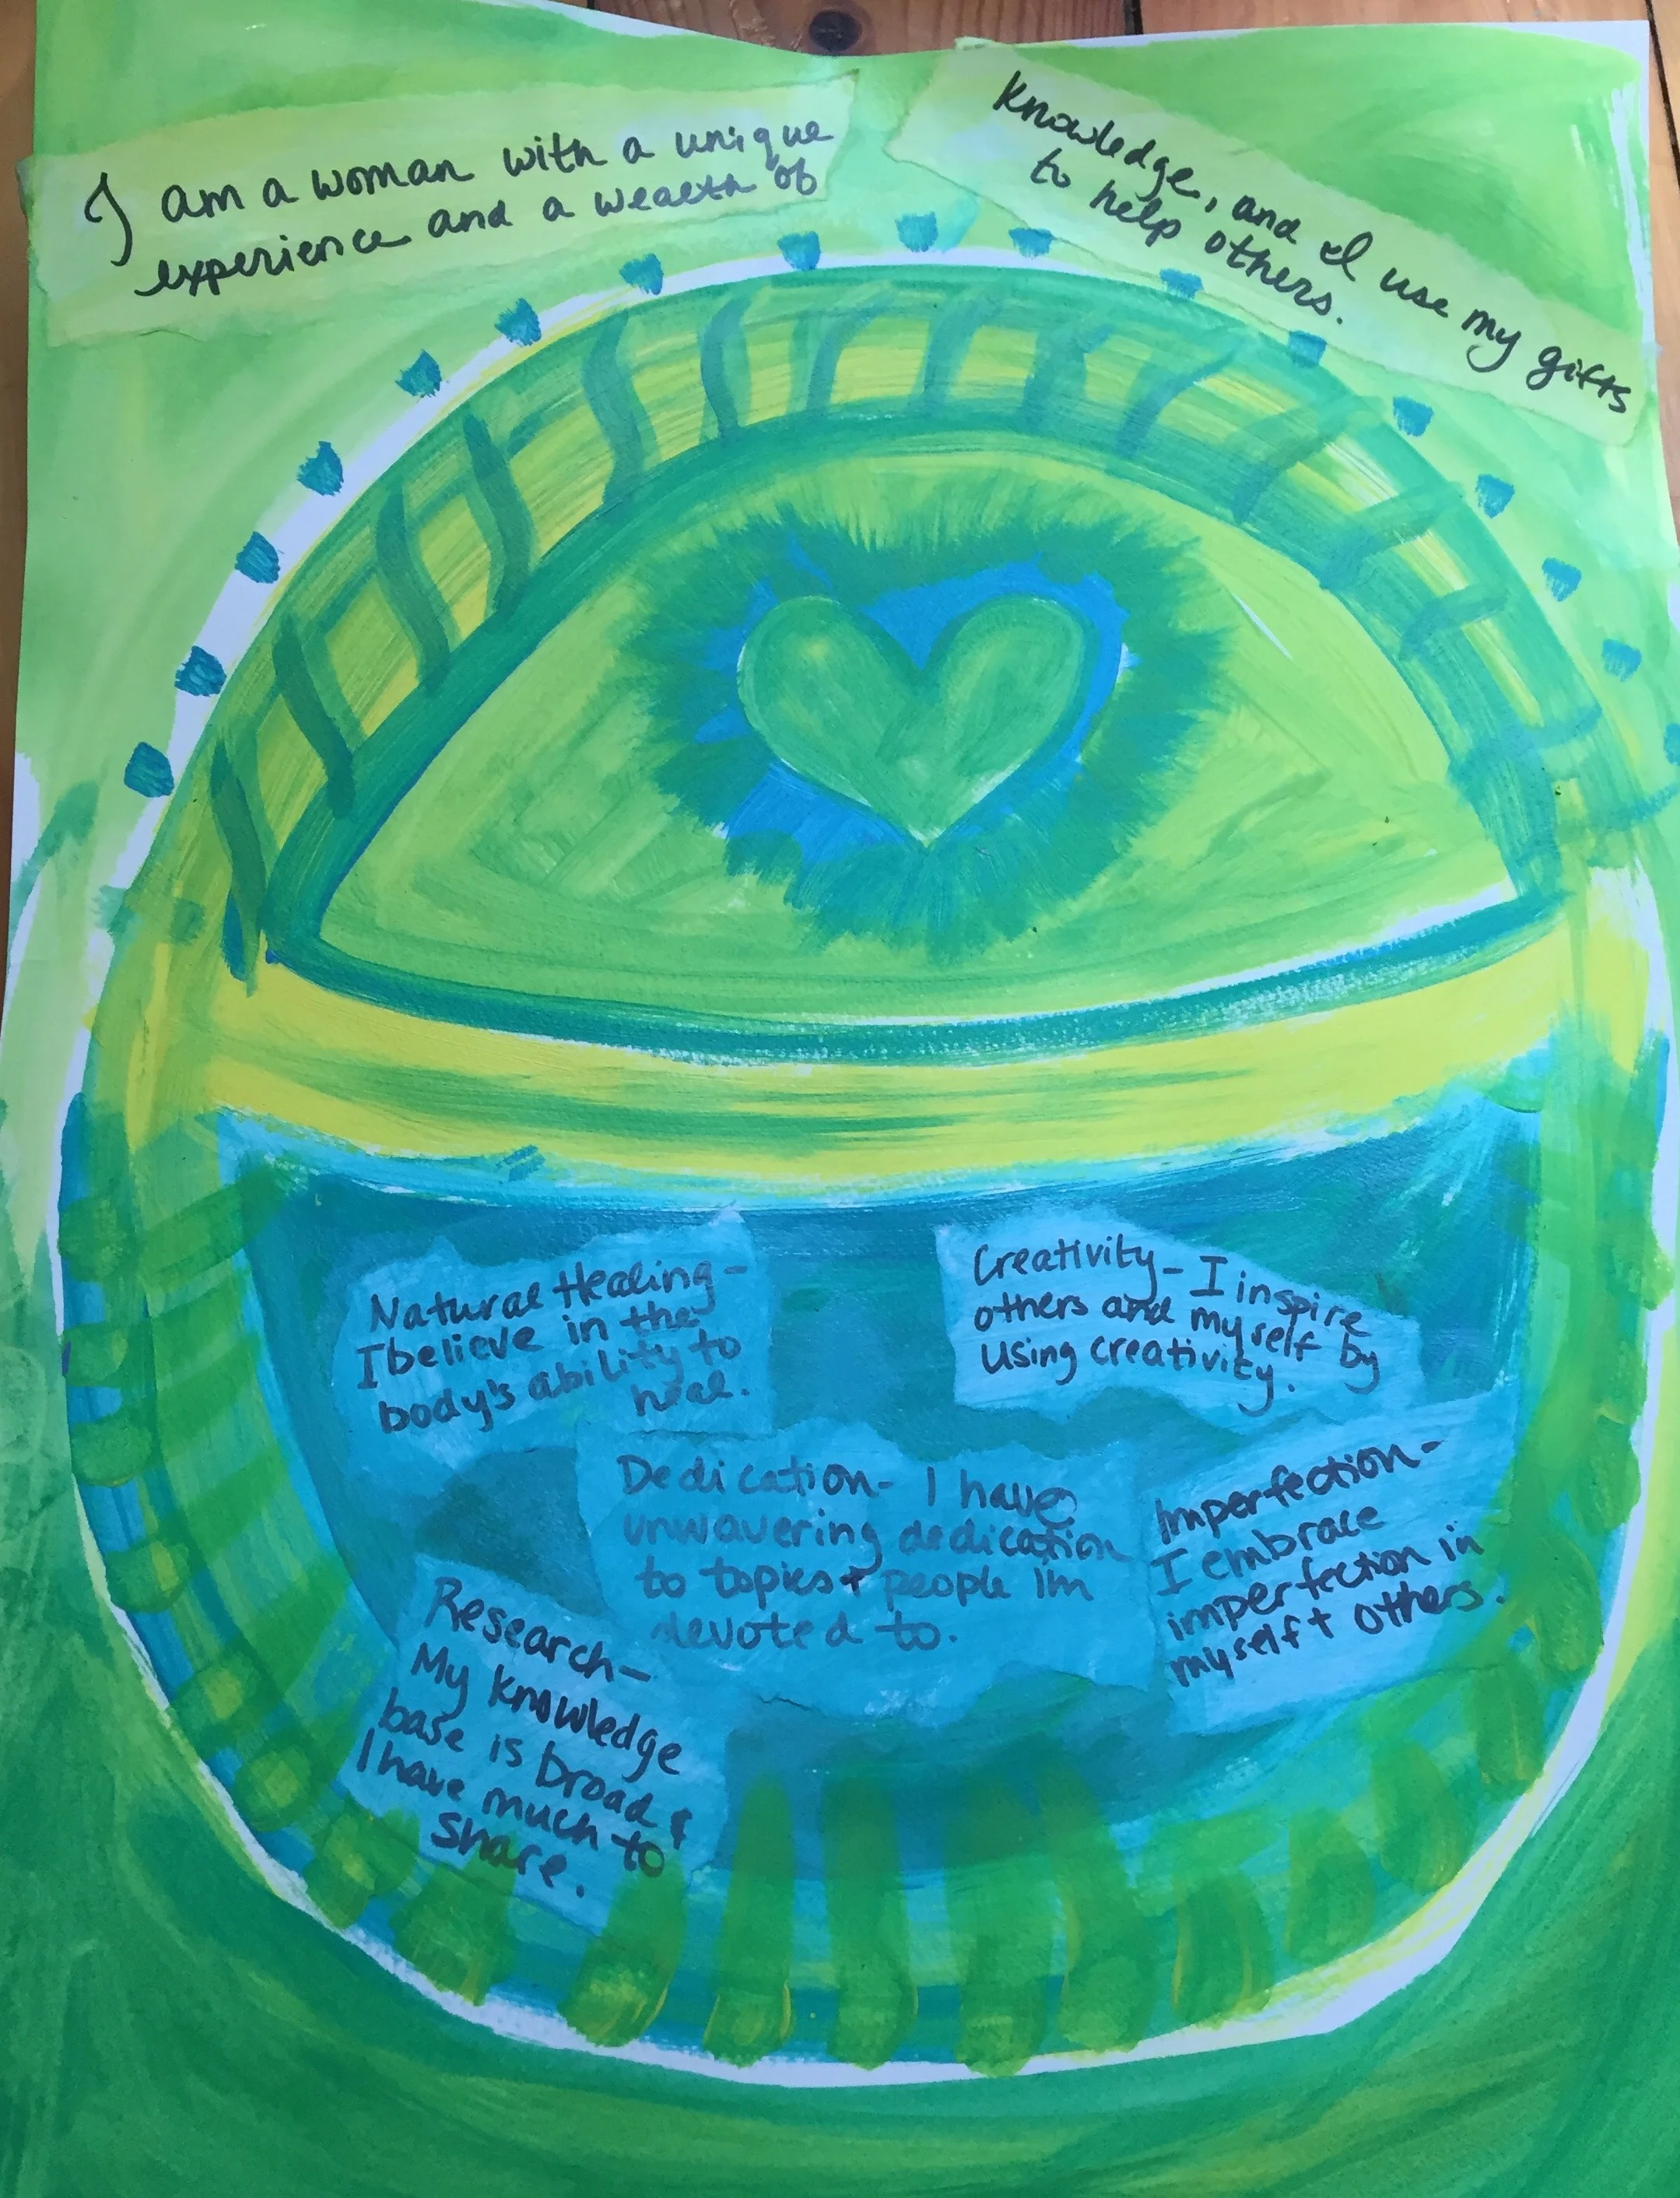 I am a woman with a unique
experience and a wealth of
knowledge, and I use my gifts
to help others.
Natural Healing -
I believe in the
body's ability to
heal.
Creativity - I inspire
others and myself by
using creativity.
Dedication - I have
unwavering dedication
to topics + people Im
devoted to.
Imperfection -
I embrace
imperfection in
myself + others.
Research -
My knowledge
base is broad &
I have much to
share.